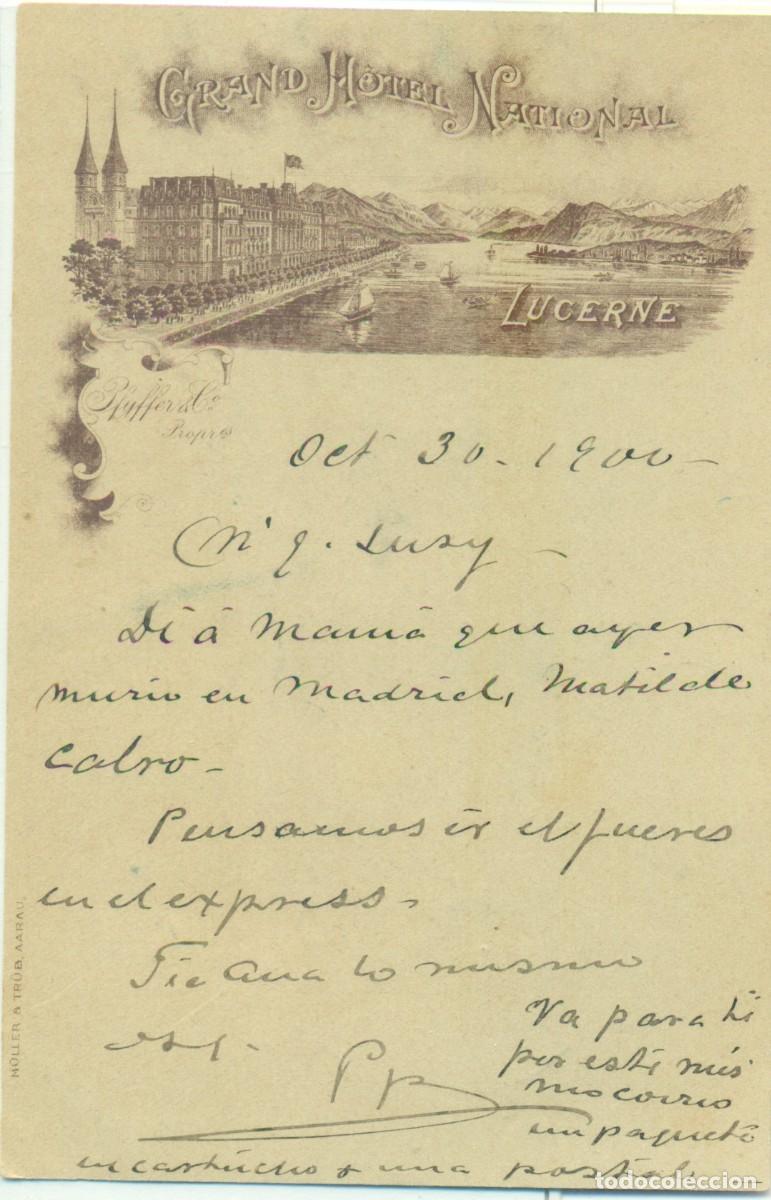 GRAND HÔTEL NATIONAL
LUCERNE
Pfyffer & Co
Propres
Oct 30 - 1900 -
Mi q. Lusy -
Dí á Mamá que ayer
murio en Madrid, Matilde
Calvo -
Pensamos ir el jueves
en el express -
Tia Ana lo mismo
Va para ti
por este mis
mo correo
un paquete
un cartucho y una postal
MÜLLER & TRÜB, AARAU.
todocoleccion